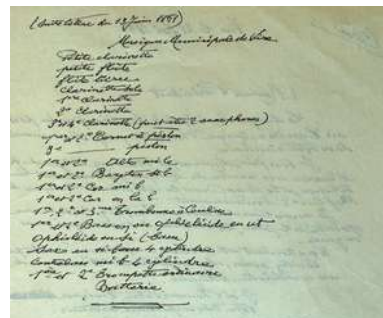 (Suite lettre du 13 Juin 1861)
Musique Municipale de Vire
Petite clarinette
petite flûte
flûte tierce
Clarinette solo
1ère Clarinette
2e Clarinette
3e et 4e Clarinette (peut-être 2 saxophones)
1er et 2e Cornet à piston
3e ——— piston
1er et 2e Altos mi b
1er et 2e Baryton si b
1er et 2e Cor mi b
1er et 2e Cor en la b
1er 2e et 3me Trombone à Coulisse
1er et 2e Basson ou ophicléide en ut
Ophicléide en si
Basse en si basse 4 cylindres
Contrebasse mi b 4 cylindres
1ère et 2e Trompette ordinaire
Batterie